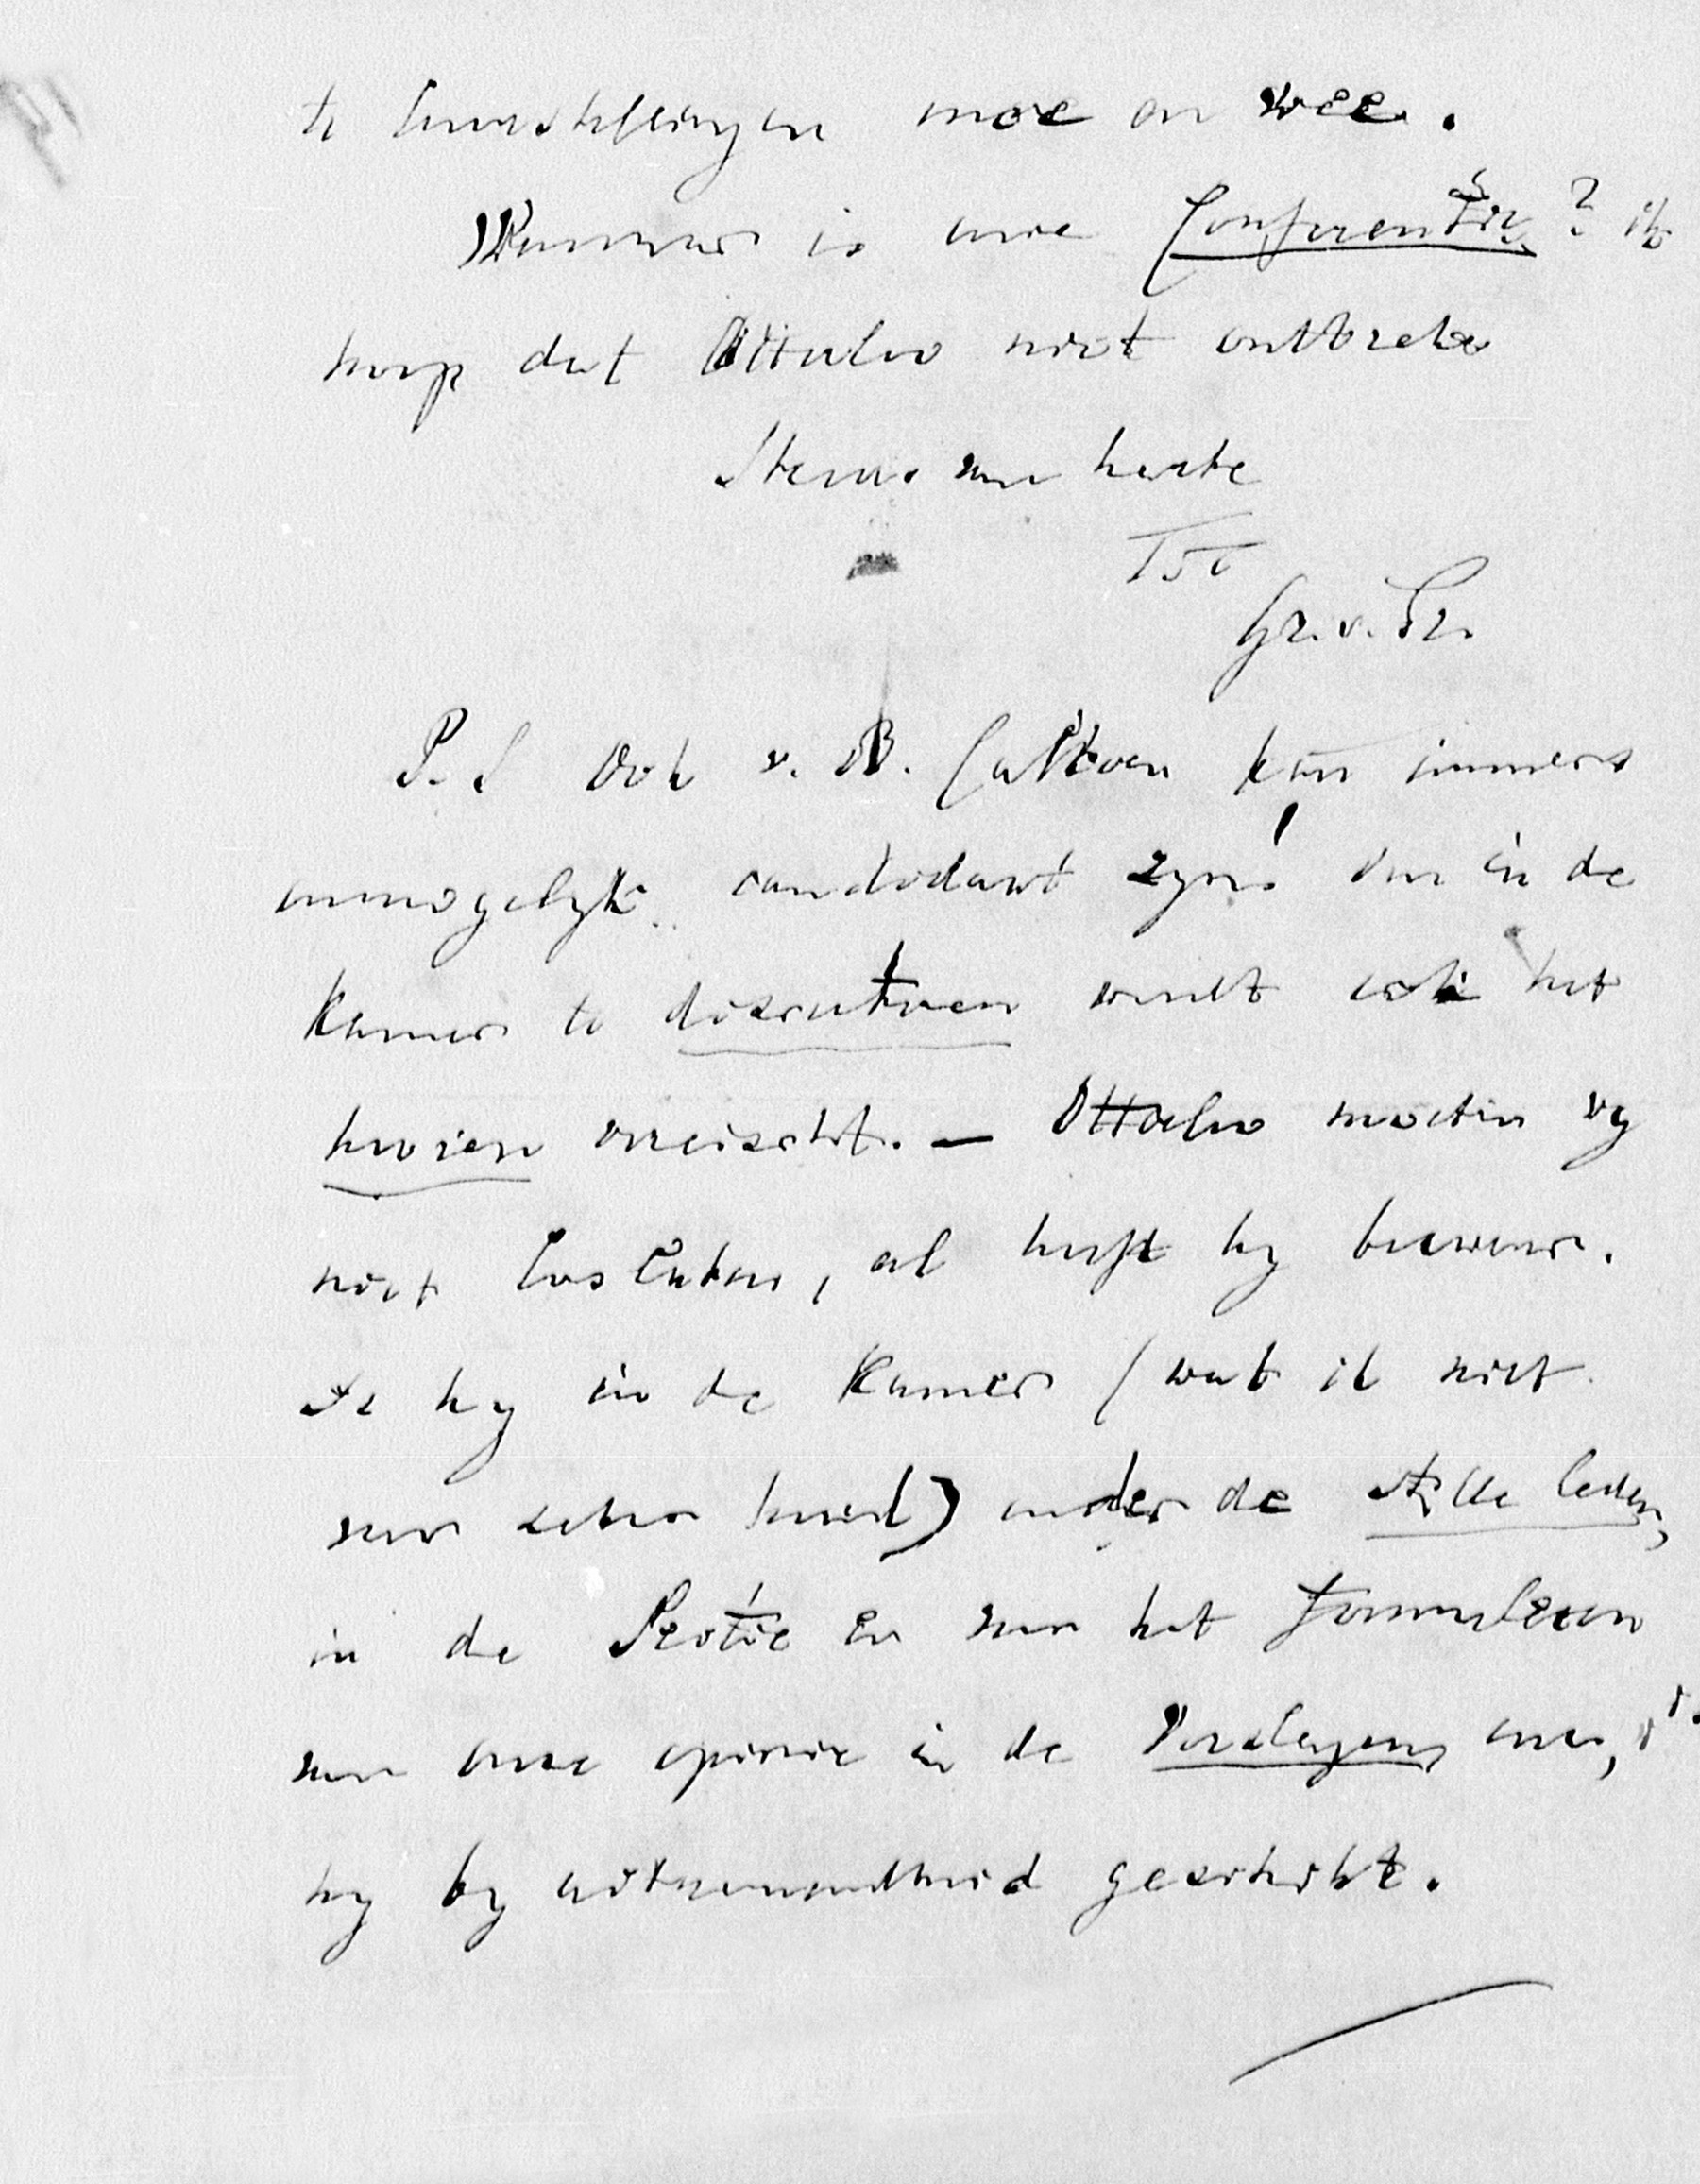 te leurstellingen moe en wee.
Wanneer is uwe Conferentie? ik
hoop dat Otterloo niet ontbreke
Steeds van harte
Tot
Gr. v. Pr.
P.S Ook v. B. Calkoen kan immers
onmogelyk candidaat zyn! Om in de
Kamer te discutieren wordt ook het
hooren vereischt. — Otterloo moeten wy
niet loslaten, al heeft hy bezwaar.
Is hy in de Kamer (wat ik niet
voor zeker houd) onder de stille leden,
in de Sectie en van het formuleren
van onze opinie in de Verslagen enz,
hy by uitnemendheid geschikt.